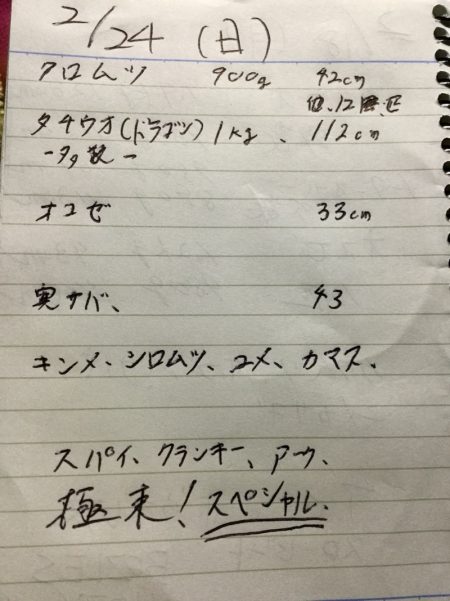 2/24 (日)
クロムツ 900g 42cm
他、12匹
タチウオ(ドラゴン) 1kg、112cm
-多数-
オコゼ 33cm
実サバ、 43
キンメ、シロムツ、ユメ、カマス、
スパイ、クランキー、アーウ、
極東! スペシャル、